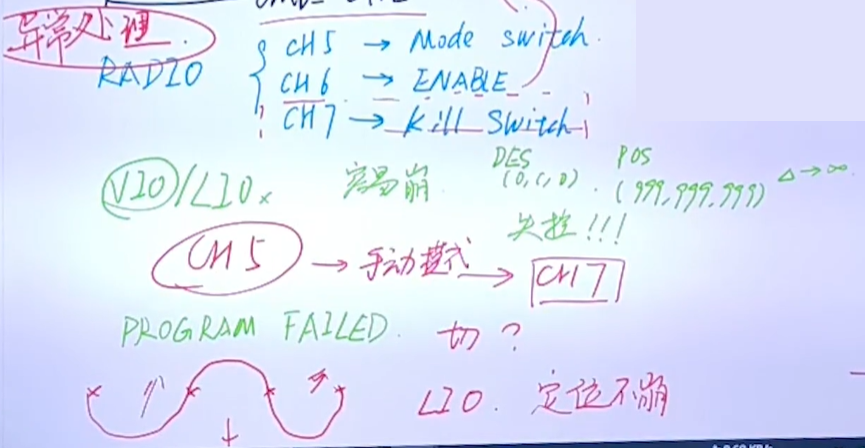 异常处理.
RADIO
CH5 → Mode switch.
CH6 → ENABLE
CH7 → Kill Switch
VIO/LIO x 容易崩 DES (0,0,0). POS (999,999,999) Δ→∞.
失控!!!
CH5 → 手动模式 → CH7
PROGRAM FAILED. 切?
LIO. 定位不崩